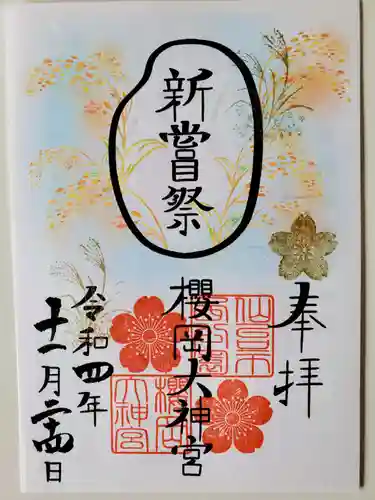 奉拝
新嘗祭
櫻岡大神宮
令和四年
十一月二十四日
櫻岡
大神宮